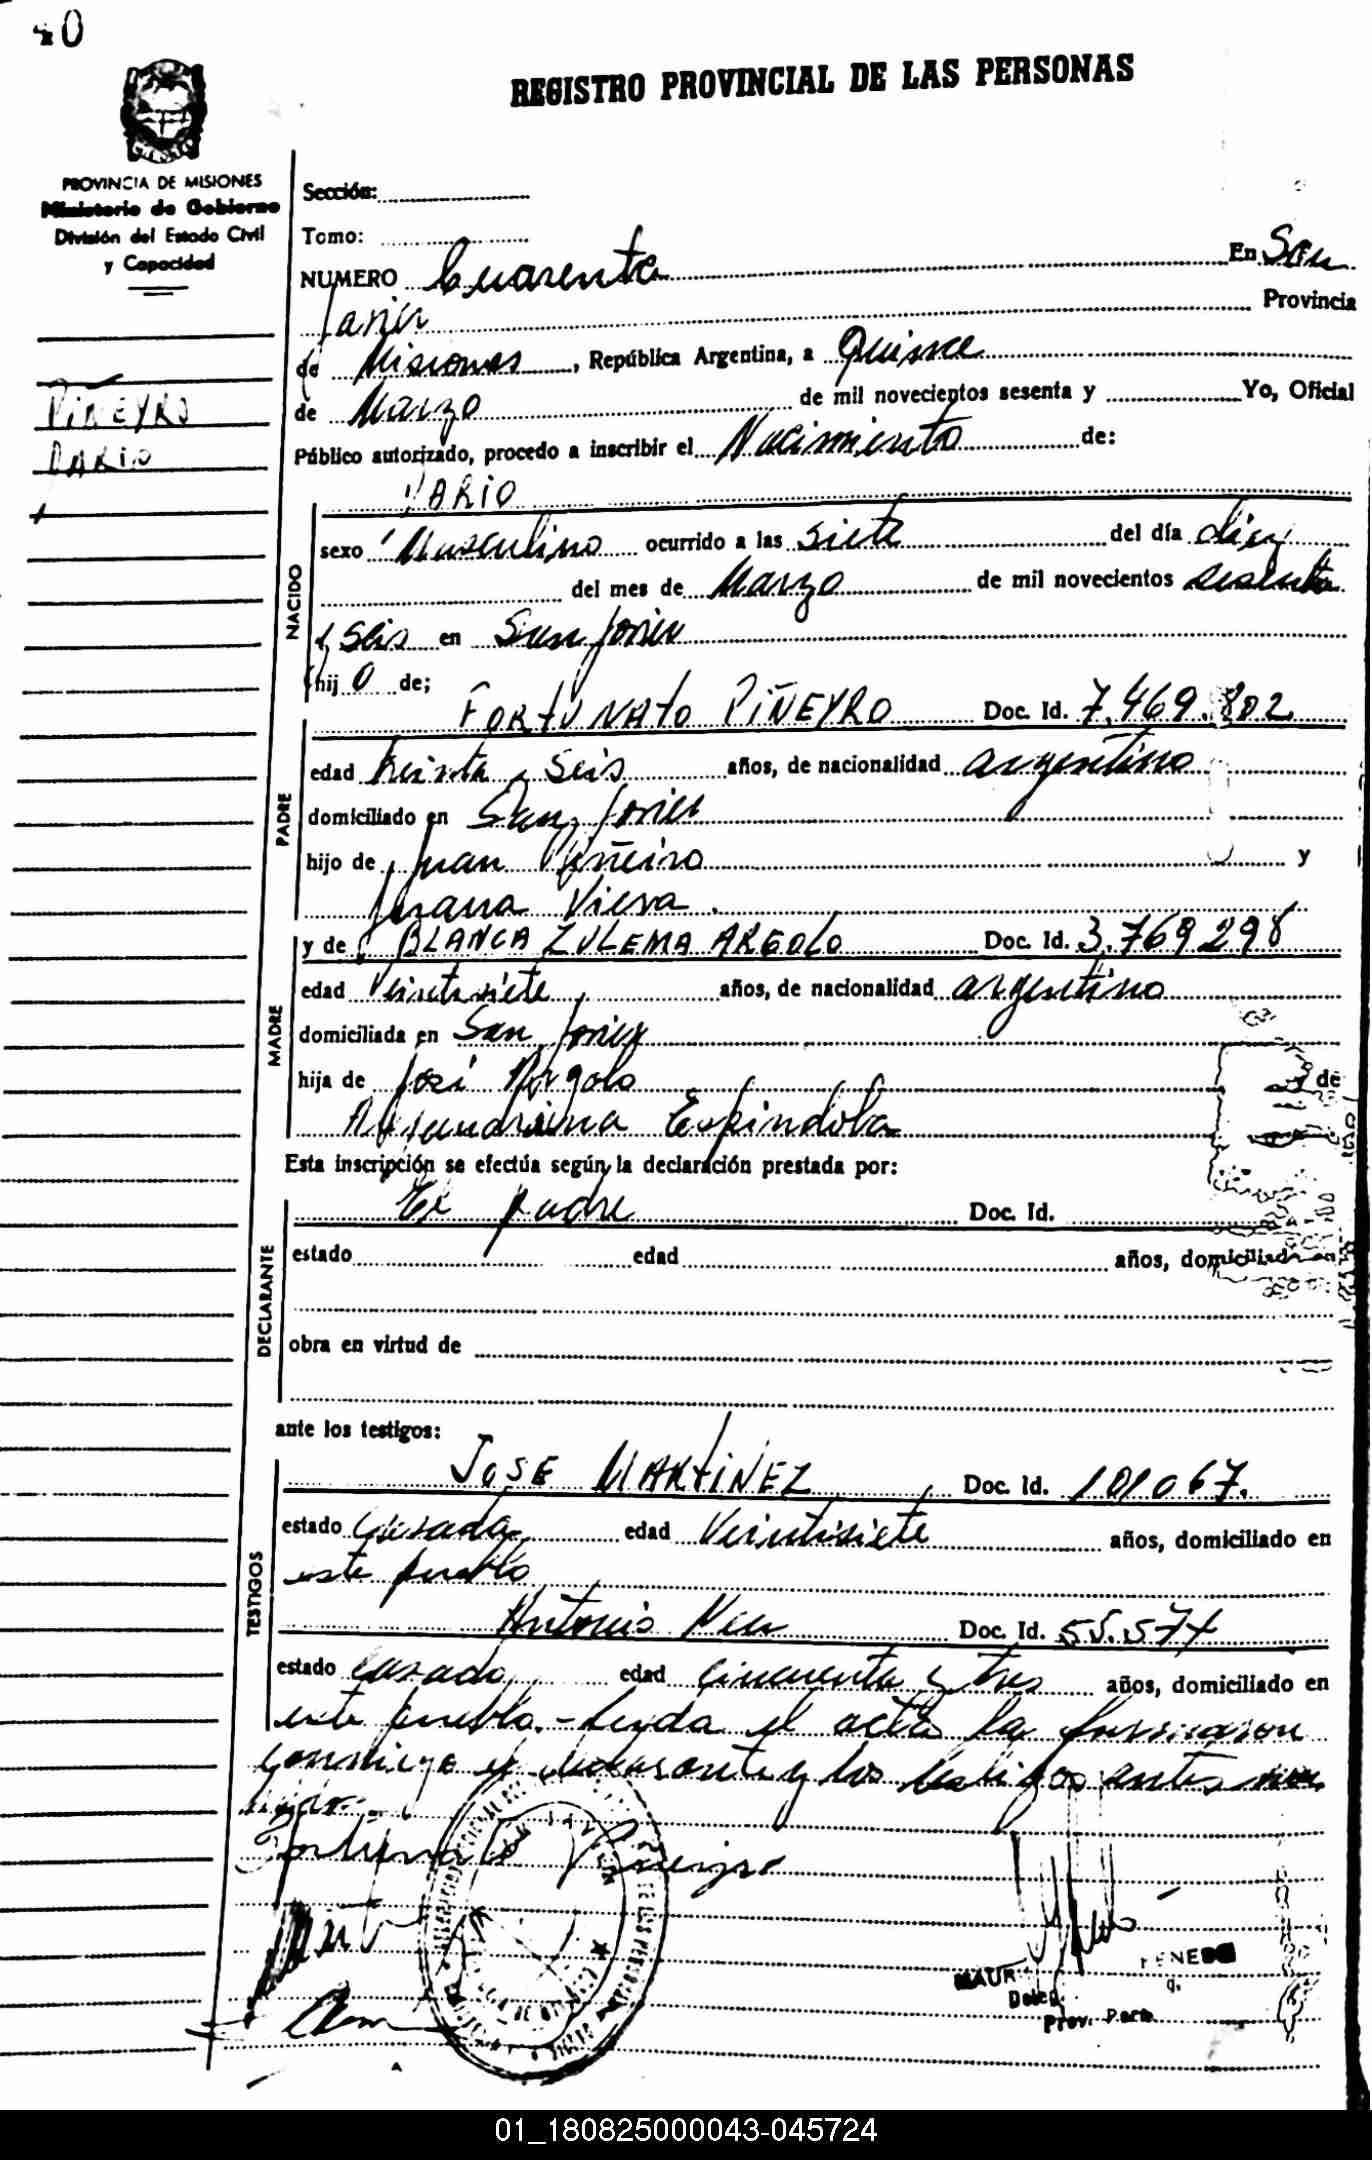 40
REGISTRO PROVINCIAL DE LAS PERSONAS
PROVINCIA DE MISIONES
Ministerio de Gobierno
División del Estado Civil
y Capacidad
PIÑEYRO
DARIO
Sección:
Tomo:
NUMERO Cuarenta En San
Javier Provincia
de Misiones, República Argentina, a Quince
de Marzo de mil novecientos sesenta y Yo, Oficial
Público autorizado, procedo a inscribir el Nacimiento de:
NACIDO
DARIO
sexo Masculino ocurrido a las siete del día diez
del mes de Marzo de mil novecientos sesenta
y seis en San Javier
hijo de;
PADRE
FORTUNATO PIÑEYRO Doc. Id. 7.469.802
edad treinta y seis años, de nacionalidad argentino
domiciliado en San Javier
hijo de Juan Piñeiro y
Juana Viera.
MADRE
y de BLANCA ZULEMA ARGOLO Doc. Id. 3.769298
edad Veintisiete años, de nacionalidad argentino
domiciliada en San Javier
hija de José Argolo y de
Alejandrina Espindola
Esta inscripción se efectúa según la declaración prestada por:
DECLARANTE
El padre Doc. Id.
estado edad años, domiciliado en
obra en virtud de
ante los testigos:
TESTIGOS
JOSE MARTINEZ Doc. Id. 101067.
estado casado edad Veintisiete años, domiciliado en
este pueblo
Antonio Doc. Id. 55.574
estado casado edad cincuenta y tres años, domiciliado en
este pueblo.- Leyda el acta la firmaron
conmigo el declarante y los testigos antes
Fortunato Piñeyro
Prov.
01_180825000043-045724